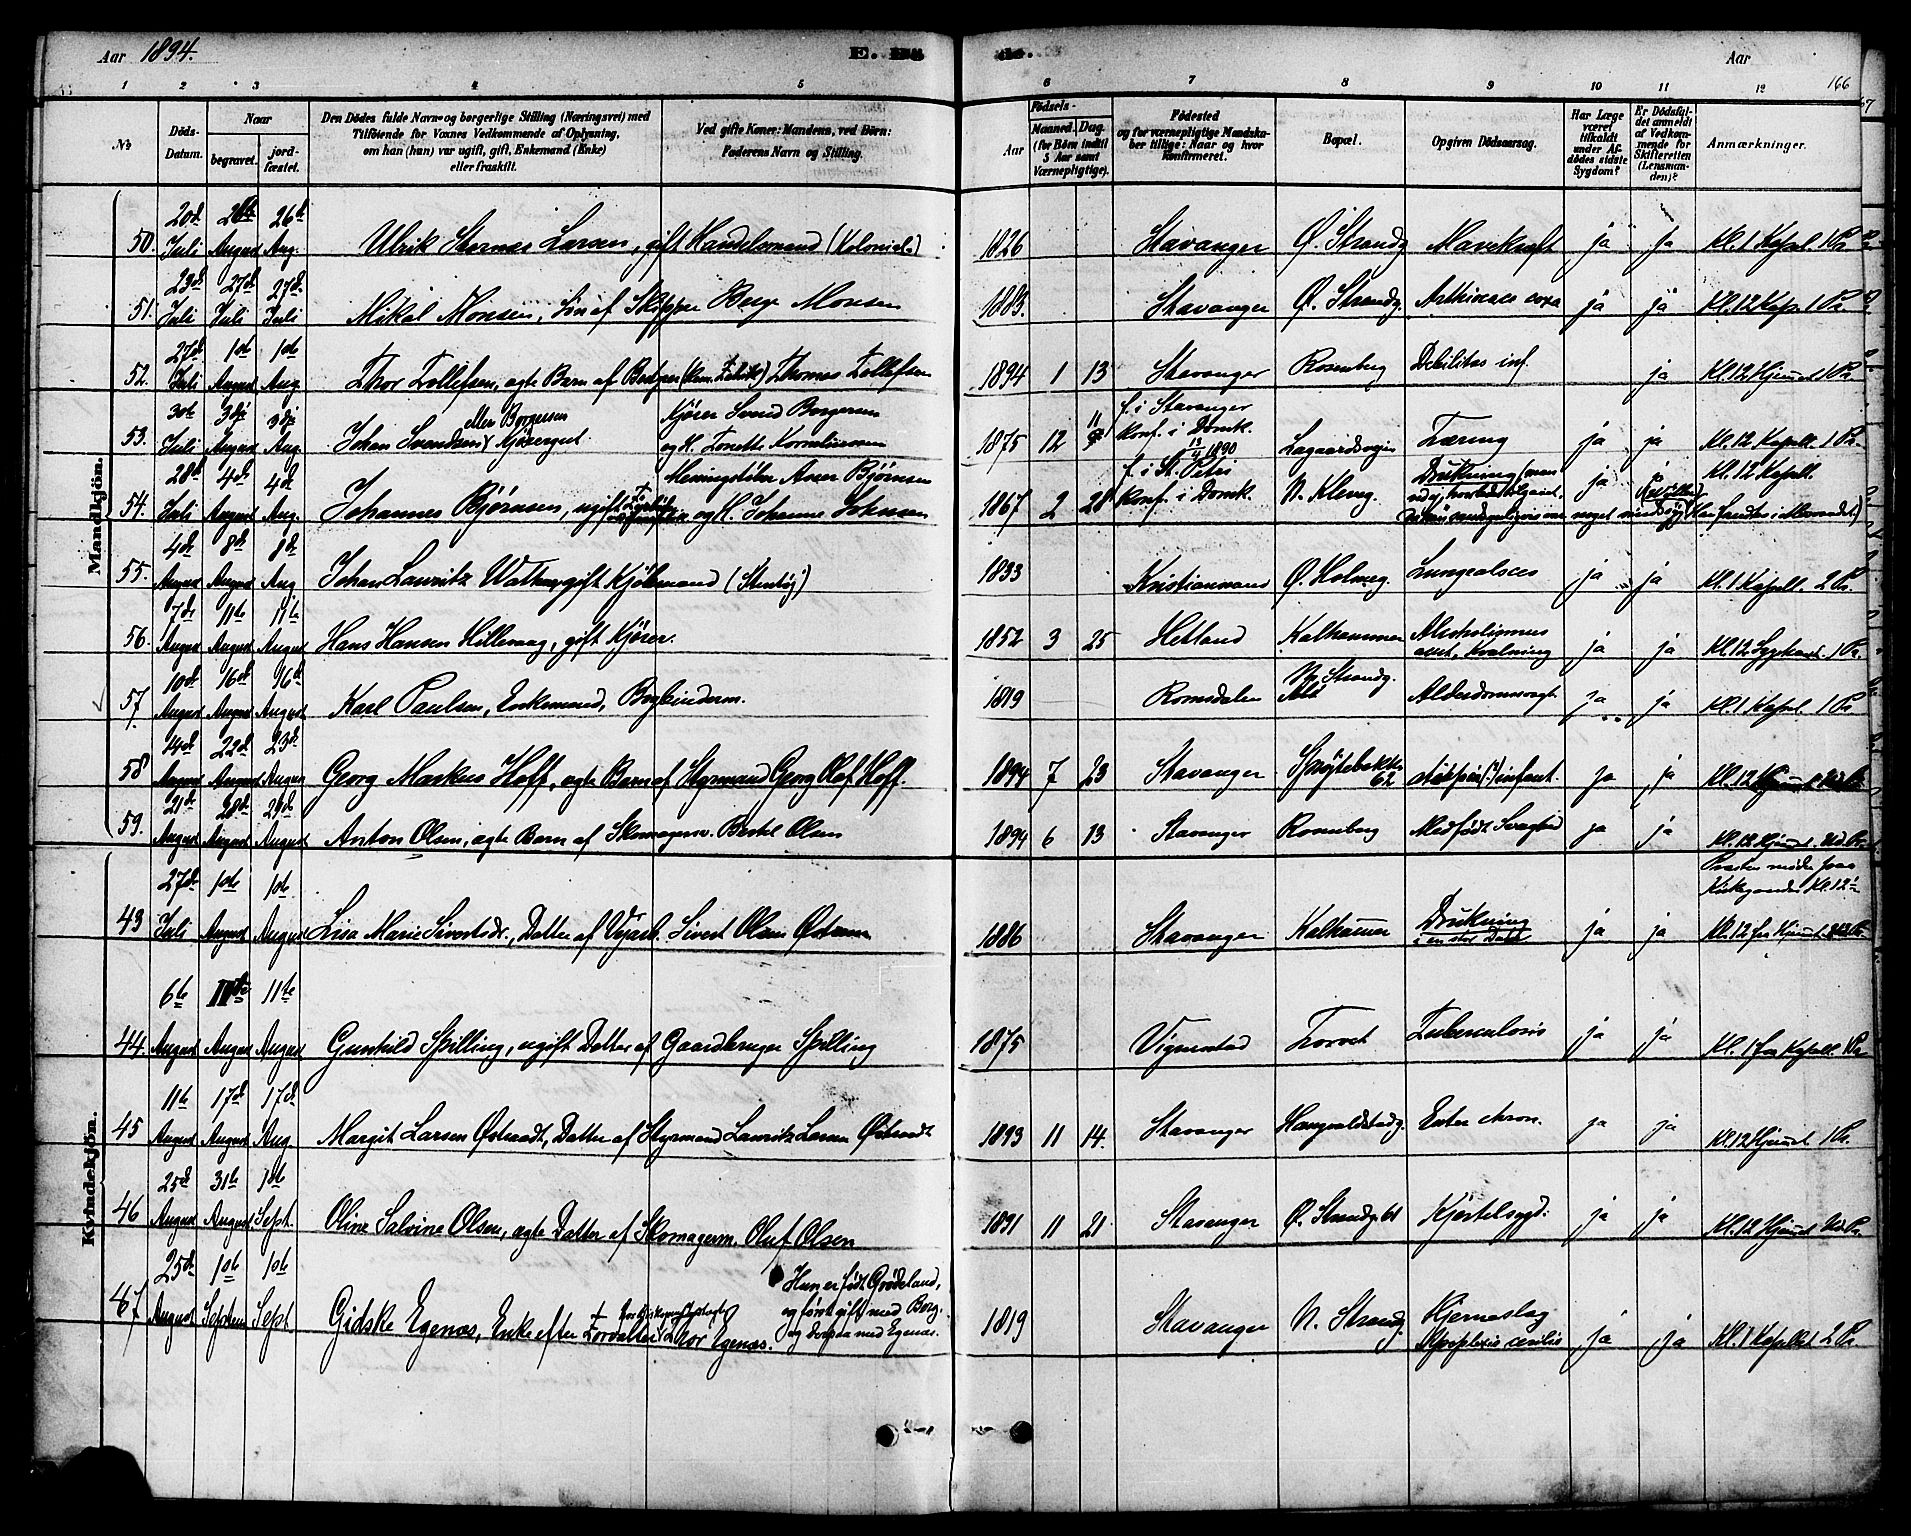 Aar 1894.
E. Dø de.
Aar
166
1 2 3 4 5 6 7 8 9 10 11 12
No
Döds-Datum.
Naar
begravet.
jordfæstet.
Den Dödes fulde Navn og borgerlige Stilling (Næringsvei) med
Tilföiende for Voxnes Vedkommende af Oplysning,
om han (hun) var ugift, gift, Enkemand (Enke)
eller fraskilt.
Ved gifte Koner: Mandens, ved Börn:
Faderens Navn og Stilling.
Födsels-
Aar
Maaned. Dag.
(for Börn indtil
5 Aar samt
Værnepligtige).
Födested
og for værnepligtige Mandskaber
tillige: Naar og hvor
konfirmeret.
Bopæl.
Opgiven Dödsaarsag.
Har Læge
været
tilkaldt
under Afdödes
sidste
Sygdom?
Er Dödsfaldet
anmeldt
af Vedkommende
for
Skifteretten
(Lensmanden)?
Anmærkninger.
Mandkjön.
50. 20de Juli August 26de Aug. Ulrik Larsen, gift Handelsmand (Kolonial) 1826 Stavanger Ø. Strandg. Mavekræft ja ja Kl. 1 Kapel. 1 Pr.
51. 23de Juli 27de Juli 27de Juli Mikal Monsen, Søn af Skipper Berge Monsen 1883. Stavanger Ø. Strandg. ja ja Kl. 12 Kap. 1 Pr.
52. 27de Juli 1ste August 1ste Aug. Thor Tollefsen, ægte Barn af Thomas Tollefsen 1894 1 13 Stavanger Rosenberg Debilitas inf. ja Kl. 12 Hjemmet 1 Pr.
53. 30te Juli 3die August 3die Aug. Johan Svendsen eller Borgersen Kjøregut Kjører Svend Borgersen
og H. Tonette Korneliussen 1875 12 11 f. i Stavanger
Konf. i Domk. 13/4 1890 Lagaardsveien Tæring ja ja Kl. 12 Kapell. 1 Pr.
54. 28de Juli 4de August 4de Aug. Johannes Bjørnsen, ugift Bjørnsen
og H. Johanne Johnsen 1867 2 28 f. i St. Petri
Konf. i Domk. N. Kleivg. Drukning ja Kl. 12 Kapell.
55. 4de August 8de August 8de Aug. Johan Lauritz Wathne, gift Kjøbmand (Stentøi) 1833 Kristianssand Ø. Holmeg. ja ja Kl. 1 Kapell. 2 Pr.
56. 7de August 11te August 11te August Hans Hansen Hillevaag, gift Kjører. 1852 3 25 Hetland Kalhammer Alcoholismus
Kvælning ja ja Kl. 12 1 Pr.
57. 10de August 16de August 16de August Karl Paulsen, Enkemand, Bogbinderm. 1819 Romsdalen Strandg. Alderdomssvagh. ja ja Kl. 1 Kapel. 1 Pr.
58 14de August 22de August 23de August Georg Markus Hoff, ægte Barn af Styrmand Georg Olaf Hoff. 1894 7 23 Stavanger Sprøitebakken
62 infant. ja ja Kl. 12 Hjemmet Ud. Pr.
59. 21de August 28de August 29de August Anton Olsen, ægte Barn af Skomagersv. Bertel Olsen 1894 6 13 Stavanger Rosenberg Medfødt Svaghed ja ja Kl. 12 Hjemmet. Ud. Pr.
Kvindekjön.
43 27de Juli 1ste August 1ste August Lisa Marie Sivertsdr., Datter af Sivert Olsen 1886 Stavanger Kalhammer Drukning
ja ja Præsten møder paa
Kirkegaarden Kl. 12
Kl. 12 fra Hjemmet
44. 6te August 11te August 11te August Gunhild Spilling, ugift Datter af Gaardbruger Spilling 1875 Vigmostad Torvet Tuberculosis ja ja Kl. 1 fra Kapell. 1 Pr.
45 11te August 17de August 17de Aug Margit Larsen Østraadt, Datter af Styrmand Lauritz Larsen Østraadt 1893 11 14. Stavanger Haugvaldstadg. Enter chron. ja ja Kl. 12 Hjemmet 1 Pr.
46 25de August 31te August 1ste Sept. Oline Salvine Olsen, ægte Datter af Skomagerm. Oluf Olsen 1891 11 21 Stavanger Ø. Strandg. 61 Kjertelsygd. ja ja Kl. 12 Hjemmet Ud. Pr.
47 25de August 1ste Septem 1ste Sept. Gidske Egenæs, Enke efter Forvalter Thor Egenæs. Hun er født Grødeland,
og først gift med Borg.
og derpaa med Egenæs. 1819 Stavanger N. Strandg. Hjerneslag
ja ja Kl. 1 Kapellet 2 Pr.